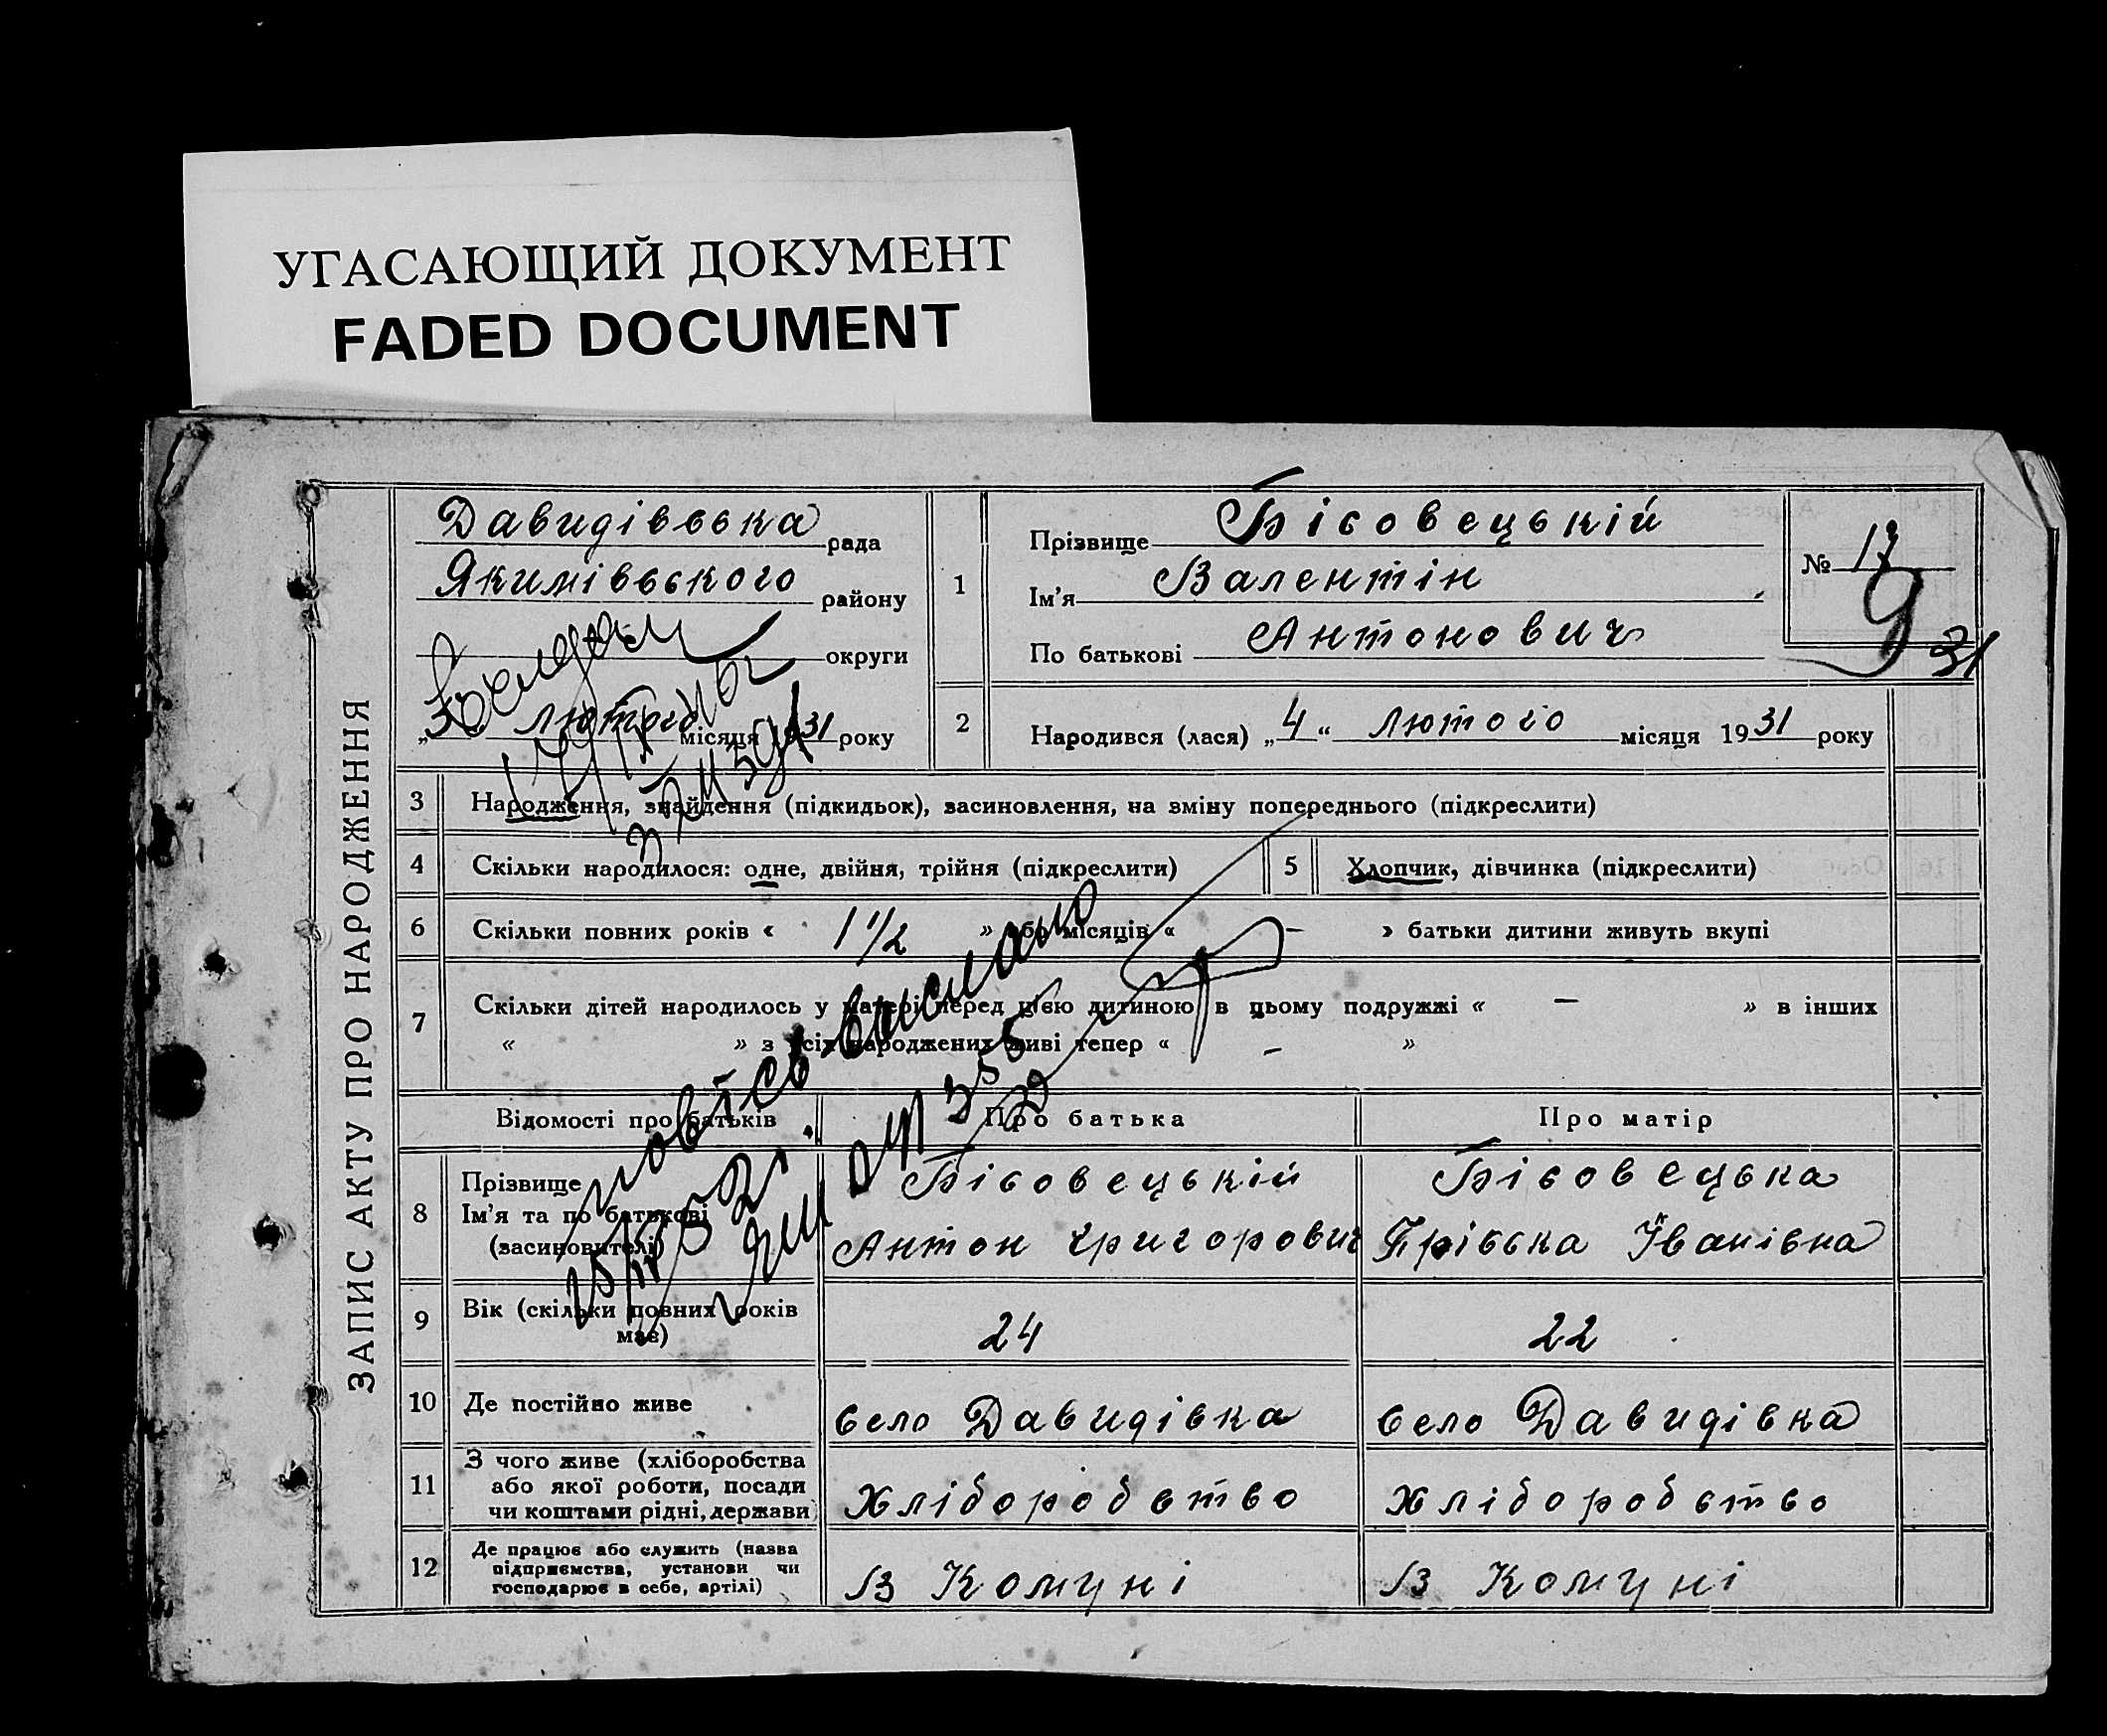 УГАСАЮЩИЙ ДОКУМЕНТ
FADED DOCUMENT
ЗАПИС АКТУ ПРО НАРОДЖЕННЯ
Давидівська рада
Якимівського району
округи
„3“ лютого місяця 1931 року
1
Прізвище Бісовецькій
Ім'я Валентін
По батькові Антонович
№ 17
9
31
2 Народився (лася) „4“ лютого місяця 1931 року
3 Народження, знайдення (підкидьок), засиновлення, на зміну попереднього (підкреслити)
4 Скільки народилося: одне, двійня, трійня (підкреслити)
5 Хлопчик, дівчинка (підкреслити)
6 Скільки повних років « 1 1/2 » або місяців « – » батьки дитини живуть вкупі
7 Скільки дітей народилось у матері перед цією дитиною в цьому подружжі « – » в інших
« » з усіх народжених живі тепер « – »
Відомості про батьків
Про батька
Про матір
8 Прізвище
Ім'я та по батькові
(засиновителі)
Бісовецькій
Антон Григорович
Бісовецька
Іванівна
9 Вік (скільки повних років
має)
24
22
10 Де постійно живе
село Давидівка
село Давидівка
11 З чого живе (хліборобства
або якої роботи, посади
чи коштами рідні, держави)
Хліборобство
Хліборобство
12 Де працює або служить (назва
підприємства, установи чи
господарює в себе, артілі)
В Комуні
В Комуні